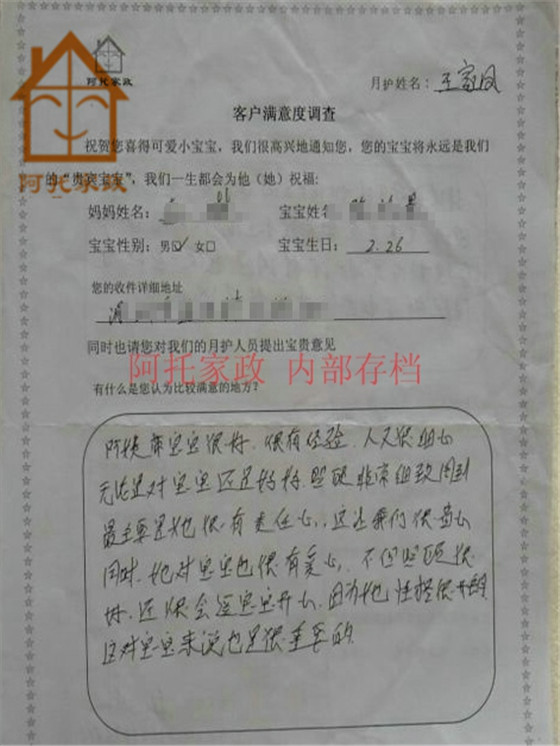 阿托家政
月护姓名：王家凤
客户满意度调查
祝贺您喜得可爱小宝宝，我们很高兴地通知您，您的宝宝将永远是我们
的“贵宾宝宝”，我们一生都会为他（她）祝福：
阿托家政
妈妈姓名：
宝宝姓名
宝宝性别：男☑ 女□
宝宝生日：2.26
您的收件详细地址
同时也请您对我们的月护人员提出宝贵意见
阿托家政 内部存档
有什么是您认为比较满意的地方？
阿姨带宝宝很好，很有经验，人又很细心
无论是对宝宝还是妈妈，照顾非常细致周到
最主要是她很有责任心，这让我们很安心
同时，她对宝宝也很有爱心，不仅照顾很
好，还很会逗宝宝开心，因为她性格很开朗
这对宝宝来说也是很重要的